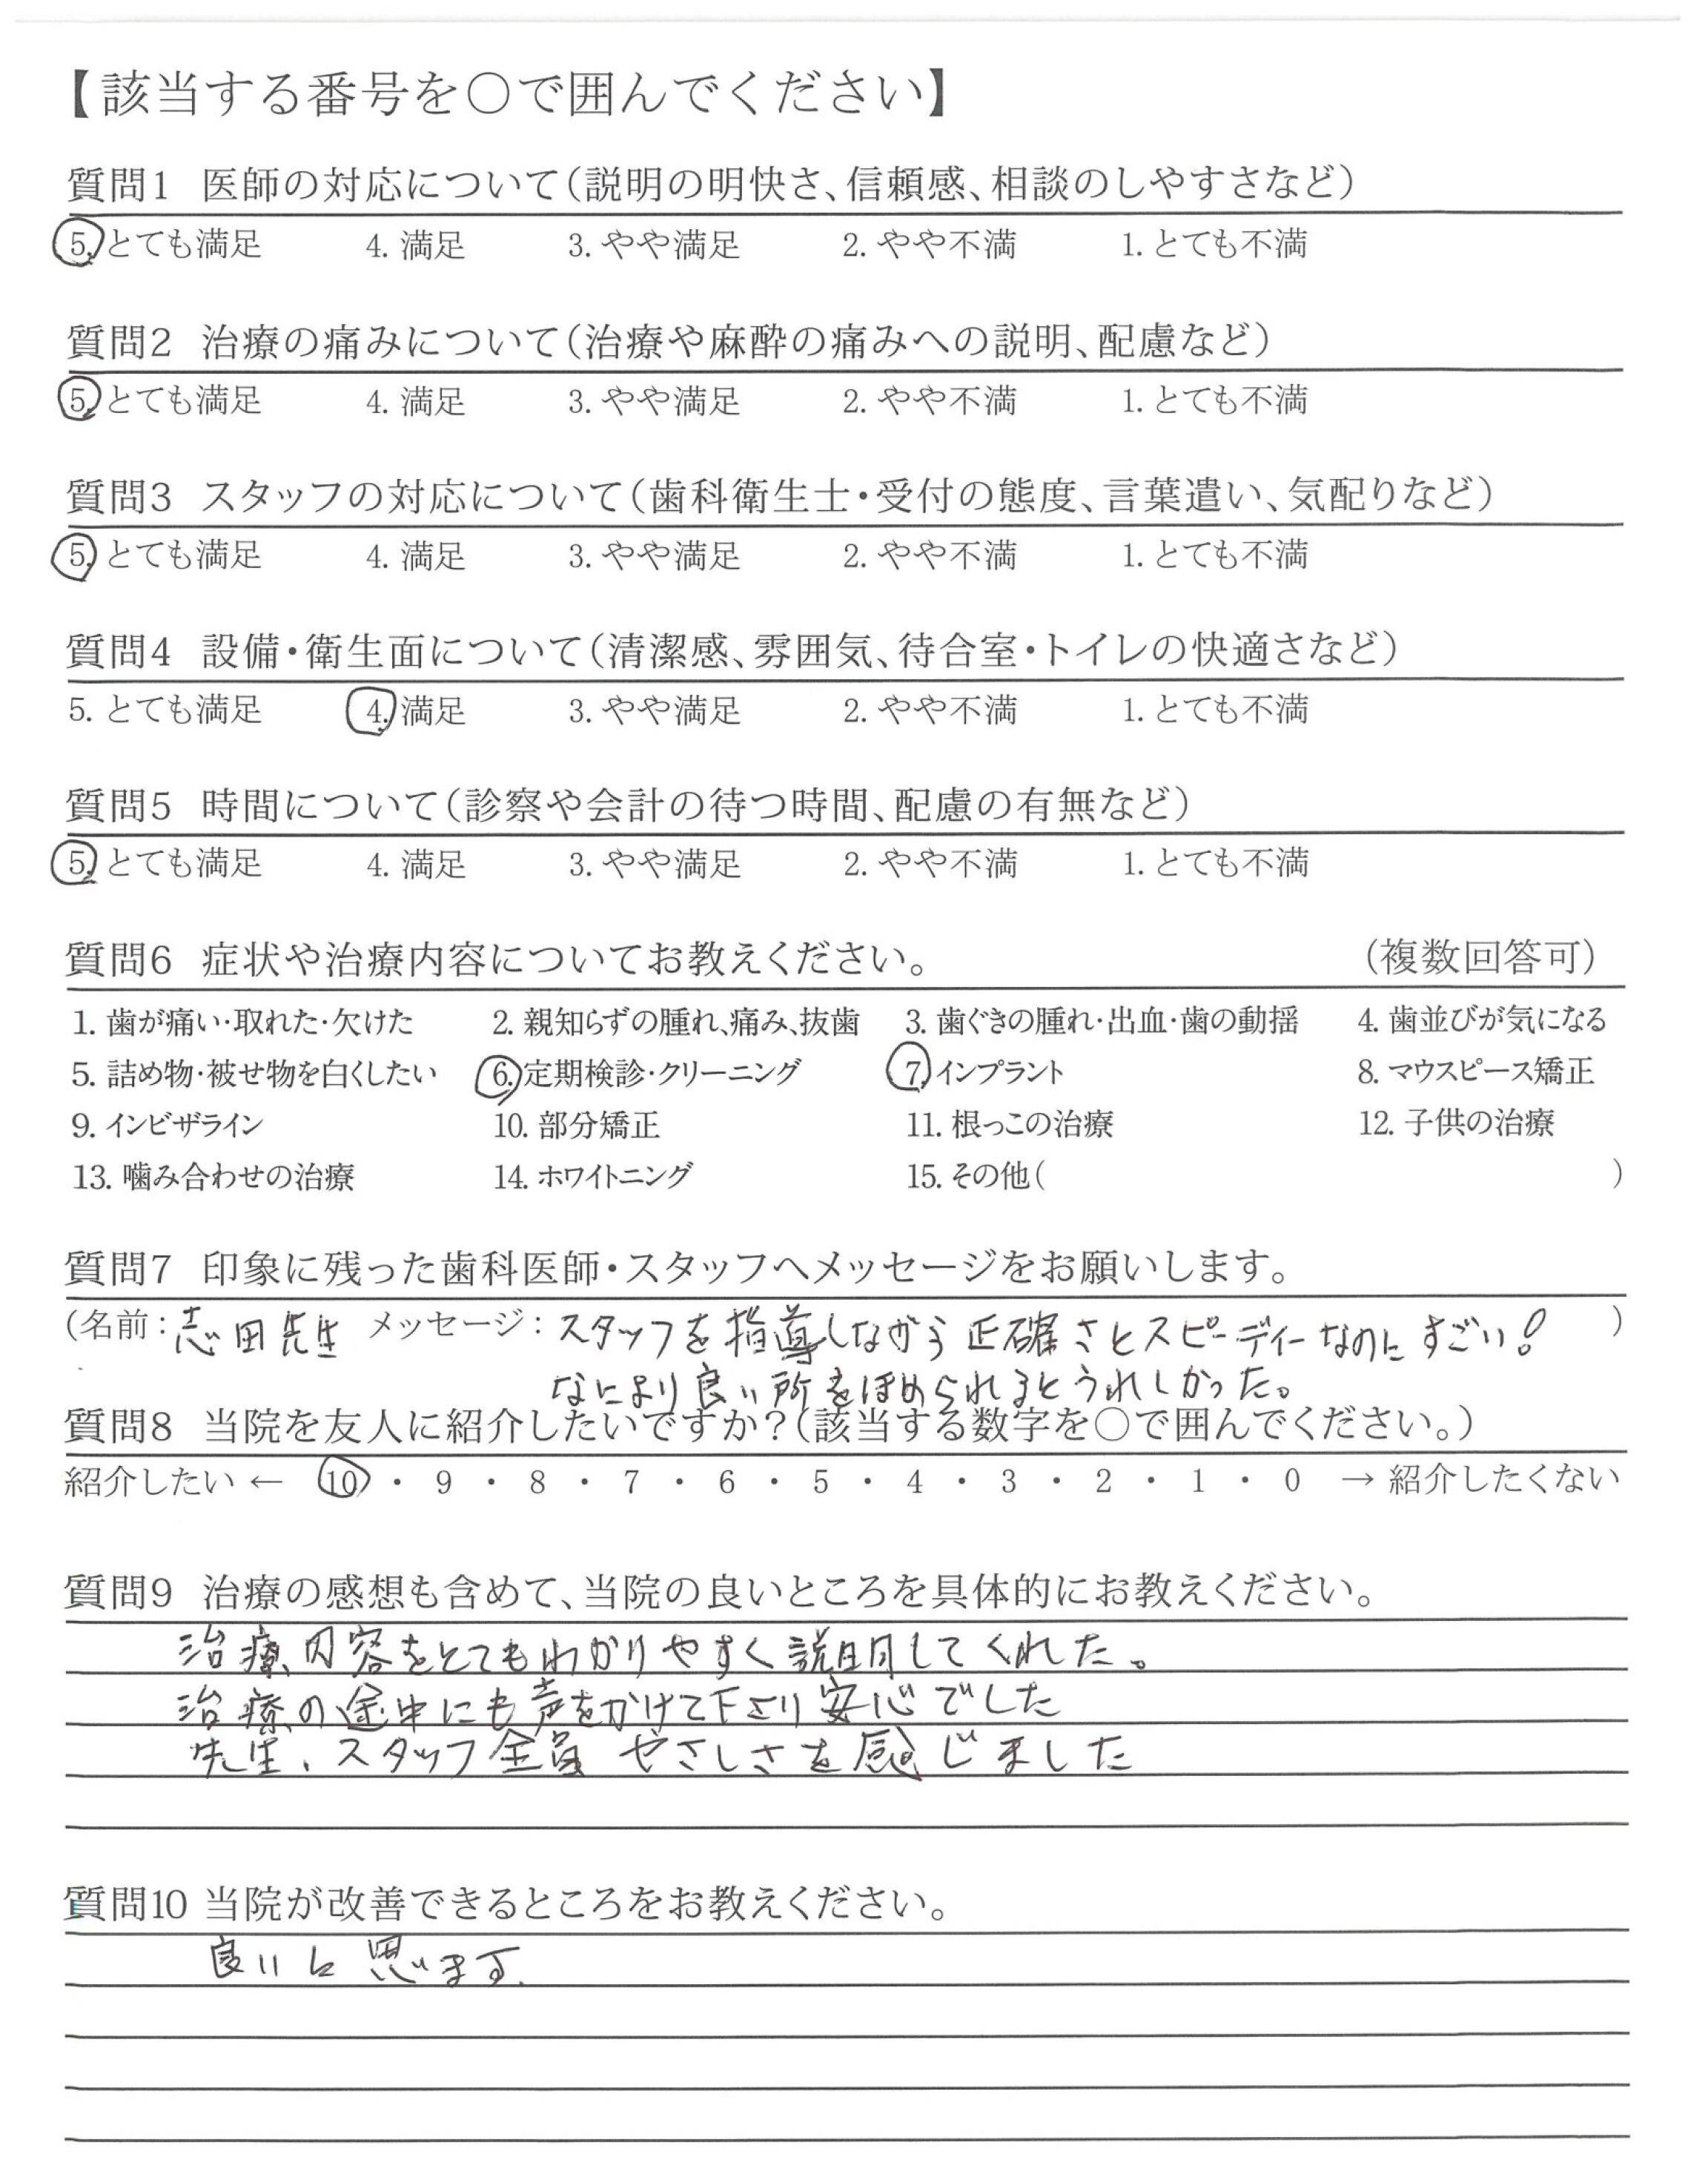 【該当する番号を○で囲んでください】
質問1 医師の対応について(説明の明快さ、信頼感、相談のしやすさなど)
5. とても満足 4. 満足 3. やや満足 2. やや不満 1. とても不満
質問2 治療の痛みについて(治療や麻酔の痛みへの説明、配慮など)
5. とても満足 4. 満足 3. やや満足 2. やや不満 1. とても不満
質問3 スタッフの対応について(歯科衛生士・受付の態度、言葉遣い、気配りなど)
5. とても満足 4. 満足 3. やや満足 2. やや不満 1. とても不満
質問4 設備・衛生面について(清潔感、雰囲気、待合室・トイレの快適さなど)
5. とても満足 4. 満足 3. やや満足 2. やや不満 1. とても不満
質問5 時間について(診察や会計の待つ時間、配慮の有無など)
5. とても満足 4. 満足 3. やや満足 2. やや不満 1. とても不満
質問6 症状や治療内容についてお教えください。 (複数回答可)
1. 歯が痛い・取れた・欠けた 2. 親知らずの腫れ、痛み、抜歯 3. 歯ぐきの腫れ・出血・歯の動揺 4. 歯並びが気になる
5. 詰め物・被せ物を白くしたい 6. 定期検診・クリーニング 7. インプラント 8. マウスピース矯正
9. インビザライン 10. 部分矯正 11. 根っこの治療 12. 子供の治療
13. 噛み合わせの治療 14. ホワイトニング 15. その他( )
質問7 印象に残った歯科医師・スタッフへメッセージをお願いします。
(名前：志田先生 メッセージ：スタッフを指導しながら正確さとスピーディーなのにすごい! )
なにより良い所をほめられるとうれしかった。
質問8 当院を友人に紹介したいですか?(該当する数字を○で囲んでください。)
紹介したい ← 10 ・ 9 ・ 8 ・ 7 ・ 6 ・ 5 ・ 4 ・ 3 ・ 2 ・ 1 ・ 0 → 紹介したくない
質問9 治療の感想も含めて、当院の良いところを具体的にお教えください。
治療内容をとてもわかりやすく説明してくれた。
治療の途中にも声をかけて下さり安心でした
先生、スタッフ全員やさしさを感じました
質問10 当院が改善できるところをお教えください。
良いと思います.